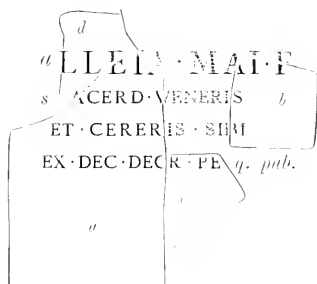 d
a LLEIA · MAI · F
s ACERD · VENERIS b
ET · CERERIS · SIBI
EX · DEC · DECR · PE q. pub.
a